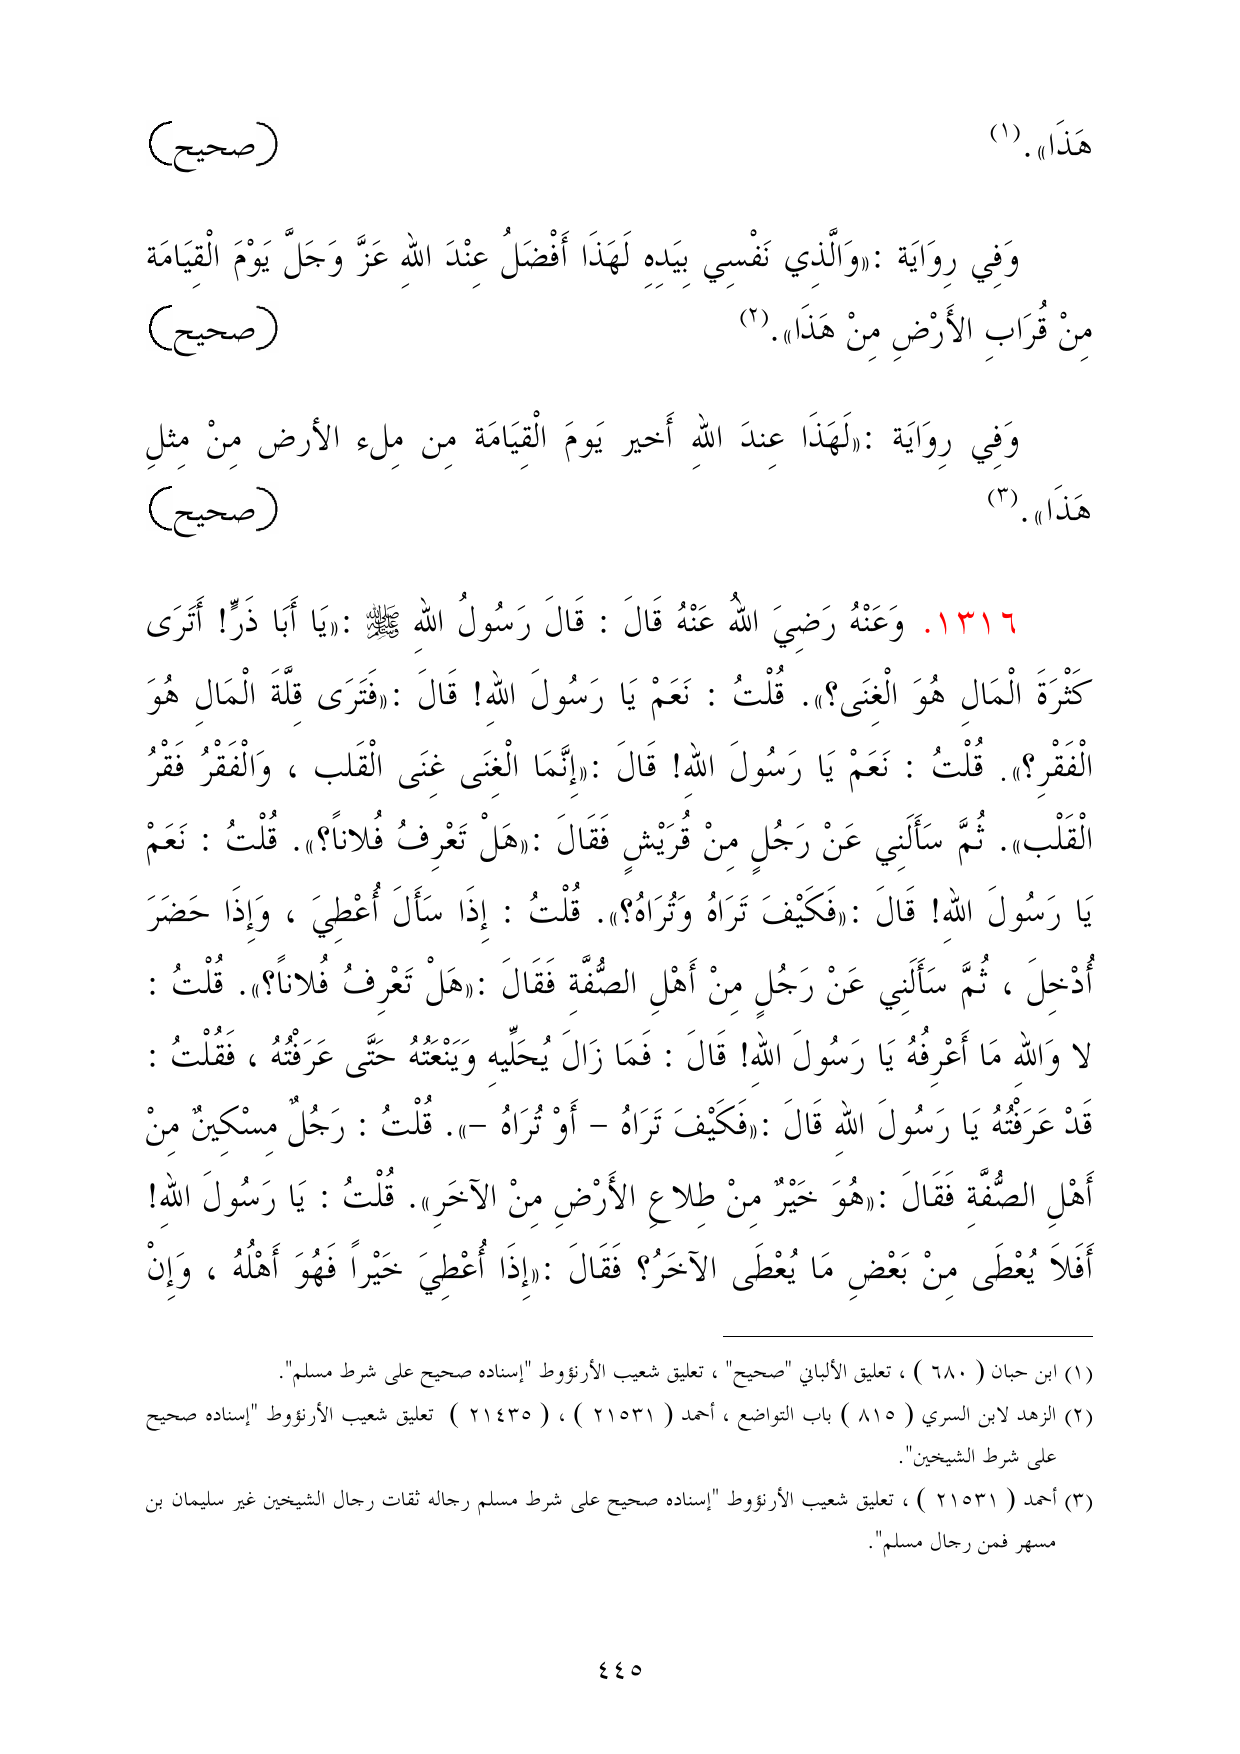 هَذَا». (١) (صحيح)
وَفِي رِوَايَة :«وَالَّذِي نَفْسِي بِيَدِهِ لَهَذَا أَفْضَلُ عِنْدَ اللهِ عَزَّ وَجَلَّ يَوْمَ الْقِيَامَة
مِنْ قُرَابِ الأَرْضِ مِنْ هَذَا». (٢) (صحيح)
وَفِي رِوَايَة :«لَهَذَا عِندَ اللهِ أَخير يَومَ الْقِيَامَة مِن مِلء الأرض مِنْ مِثلِ
هَذَا». (٣) (صحيح)
١٣١٦. وَعَنْهُ رَضِيَ اللهُ عَنْهُ قَالَ : قَالَ رَسُولُ اللهِ ﷺ :«يَا أَبَا ذَرٍّ! أَتَرَى
كَثْرَةَ الْمَالِ هُوَ الْغِنَى؟». قُلْتُ : نَعَمْ يَا رَسُولَ اللهِ! قَالَ :«فَتَرَى قِلَّةَ الْمَالِ هُوَ
الْفَقْرِ؟». قُلْتُ : نَعَمْ يَا رَسُولَ اللهِ! قَالَ :«إِنَّمَا الْغِنَى غِنَى الْقَلب ، وَالْفَقْرُ فَقْرُ
الْقَلْب». ثُمَّ سَأَلَنِي عَنْ رَجُلٍ مِنْ قُرَيْشٍ فَقَالَ :«هَلْ تَعْرِفُ فُلاناً؟». قُلْتُ : نَعَمْ
يَا رَسُولَ اللهِ! قَالَ :«فَكَيْفَ تَرَاهُ وَتُرَاهُ؟». قُلْتُ : إِذَا سَأَلَ أُعْطِيَ ، وَإِذَا حَضَرَ
أُدْخِلَ ، ثُمَّ سَأَلَنِي عَنْ رَجُلٍ مِنْ أَهْلِ الصُّفَّةِ فَقَالَ :«هَلْ تَعْرِفُ فُلاناً؟». قُلْتُ :
لا وَاللهِ مَا أَعْرِفُهُ يَا رَسُولَ اللهِ! قَالَ : فَمَا زَالَ يُحَلِّيهِ وَيَنْعَتُهُ حَتَّى عَرَفْتُهُ ، فَقُلْتُ :
قَدْ عَرَفْتُهُ يَا رَسُولَ اللهِ قَالَ :«فَكَيْفَ تَرَاهُ – أَوْ تُرَاهُ –». قُلْتُ : رَجُلٌ مِسْكِينٌ مِنْ
أَهْلِ الصُّفَّة فَقَالَ :«هُوَ خَيْرٌ مِنْ طِلاعِ الأَرْضِ مِنْ الآخَرِ». قُلْتُ : يَا رَسُولَ اللهِ!
أَفَلاَ يُعْطَى مِنْ بَعْضِ مَا يُعْطَى الآخَرُ؟ فَقَالَ :«إِذَا أُعْطِيَ خَيْراً فَهُوَ أَهْلُهُ ، وَإِنْ
(١) ابن حبان ( ٦٨٠ ) ، تعليق الألباني "صحيح" ، تعليق شعيب الأرنؤوط "إسناده صحيح على شرط مسلم".
(٢) الزهد لابن السري ( ٨١٥ ) باب التواضع ، أحمد ( ٢١٥٣١ ) ، ( ٢١٤٣٥ ) تعليق شعيب الأرنؤوط "إسناده صحيح
على شرط الشيخين".
(٣) أحمد ( ٢١٥٣١ ) ، تعليق شعيب الأرنؤوط "إسناده صحيح على شرط مسلم رجاله ثقات رجال الشيخين غير سليمان بن
مسهر فمن رجال مسلم".
٤٤٥